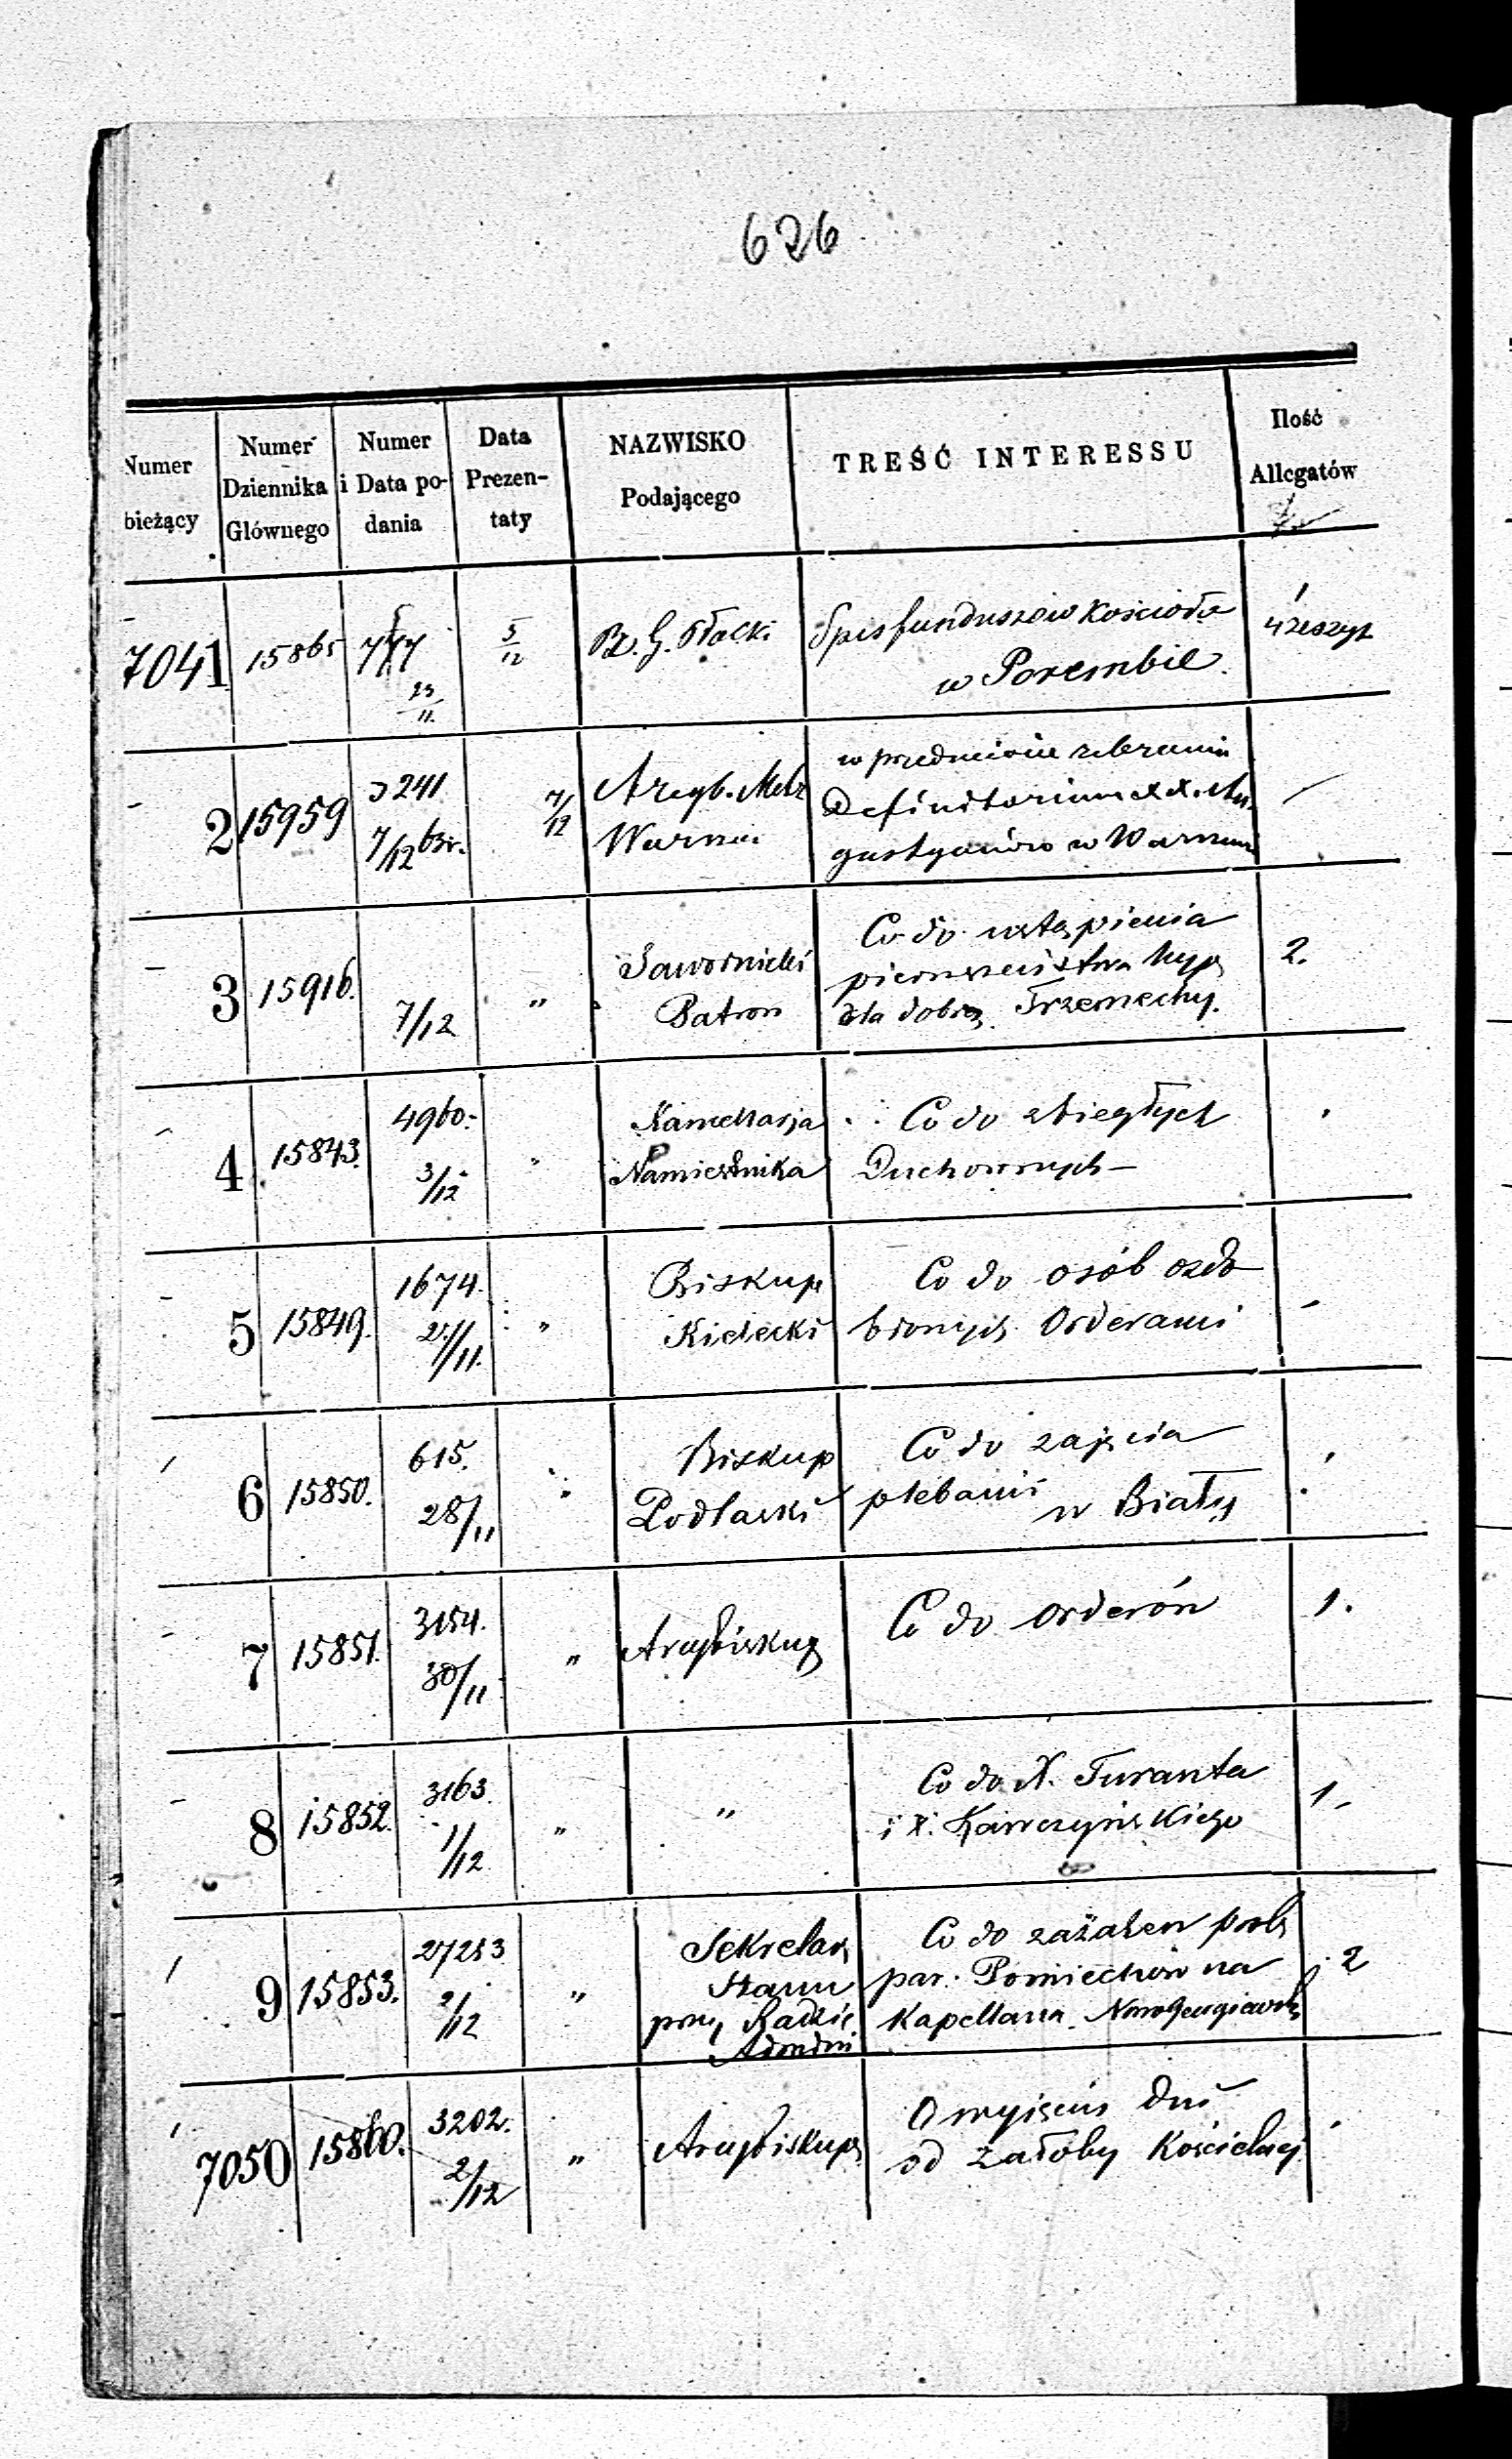 626
Numer bieżący
Numer Dziennika Głównego
Numer i Data podania
Data Prezentaty
NAZWISKO Podającego
TREŚĆ INTERESSU
Ilość Allegatów
7041 15865 23/11. 5/12 Rz. G. Płocki Spis funduszów Kościoła
w Porembie
2 15959 3241 7/12 br. 7/12 Arcyb. Metr
w przedmiocie zebrania
Definitorium XX. Au-
gustyanów w Warszawie
3 15916. 7/12 " Jawornicki
Patron
Co do ustąpienia
pierwszeństwa hyp.
dla dobr Trzemechy.
2.
4 15843. 4960. 3/12 " Kancellarja
Namiestnika
Co do zbiegłych
Duchownych –
5 15849. 1674. /11. " Biskup
Kielecki
Co do osób ozdo
bionych Orderami
6 15850. 615. 28/11 " Biskup
Podlaski
Co do zajęcia
plebanii w Biały
7 15851. 3154. 30/11 " Arcybiskup Co do orderów 1.
8 15852. 3163. 1/12 " " Co do X. Turanta
i X. Kawczyńskiego
1.
9 15853. 27253 2/12 " Sekretarz
Stanu
przy Radzie
Co do zażaleń prob.
par. Pomiechów na
Kapellana
2
7050 15860. 3202. 2/12 " Arcybiskup
O wyjęciu dni
od żałoby Kościelnej